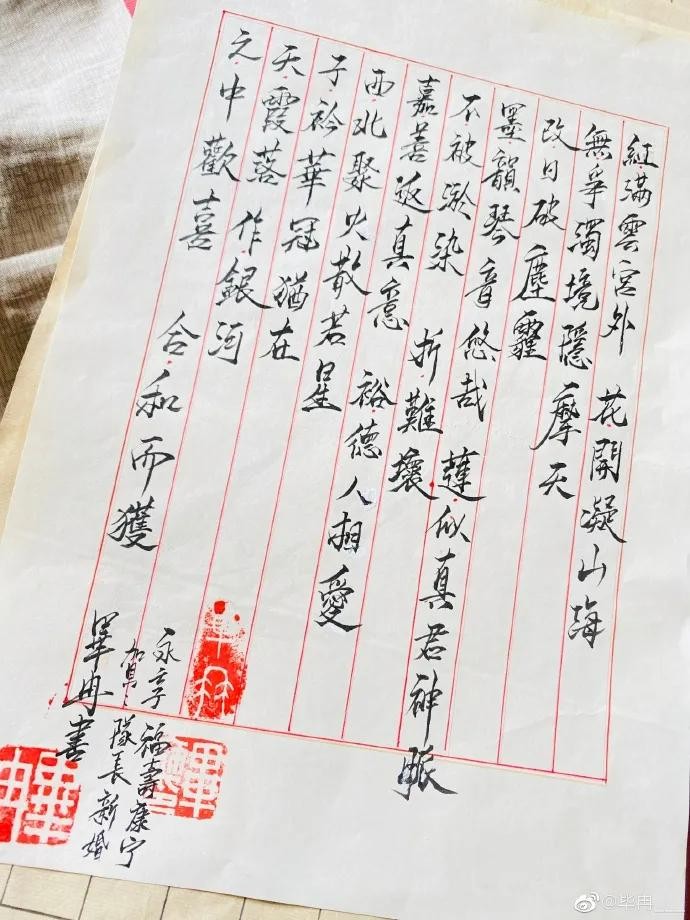 紅滿雲宮外 花開凝山海
無爭濁境隱摩天
改日破塵霾
墨韻琴音悠哉 蓮似真君神脈
不被淤染 折難壞
嘉善返真意 裕德人相愛
西北聚火散若星
子衿華冠猶在
天霞落作銀河
之中歡喜 合和而獲
永享福壽康宁
加貝隊長新婚
畢冉書
@毕冉